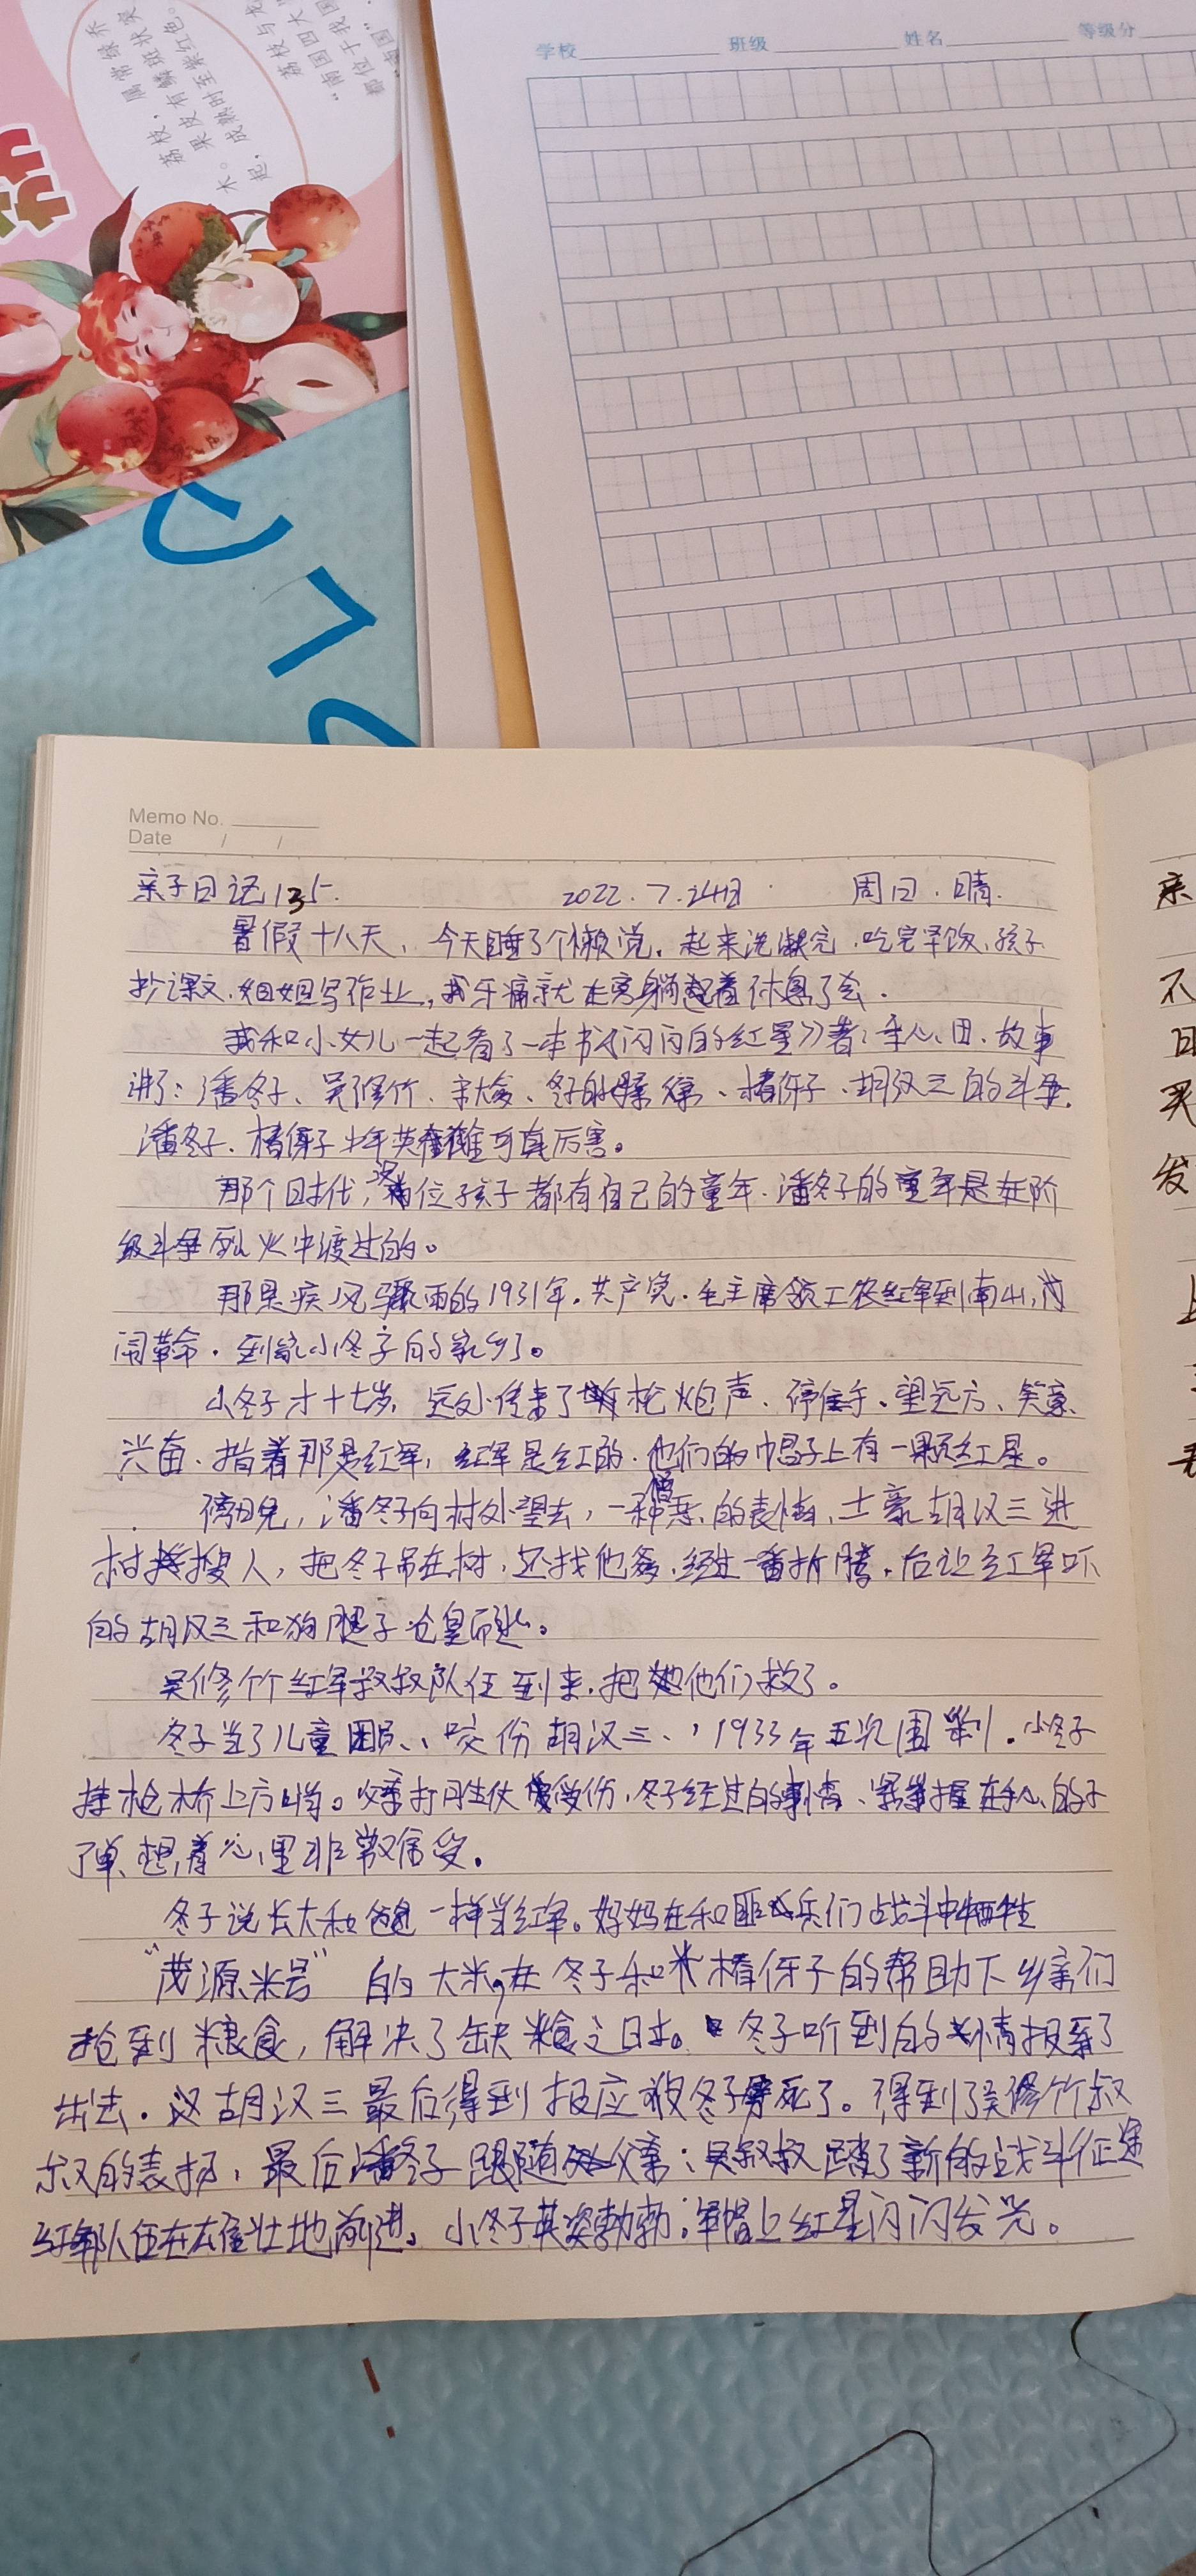 荔枝，属常绿乔
木。果皮有鳞斑状突
起，成熟时至紫红色。
荔枝与
"南国四大
都位于我国
南国"
学校 班级 姓名 等级分
Memo No.
Date / /
亲子日记135. 2022.7.24日 周日.晴.
暑假十八天，今天睡了个懒觉.起来洗漱完.吃完早饭，孩子
抄课文.姐姐写作业，我牙痛就在旁躺着休息了会.
我和小女儿一起看了一本书《闪闪的红星》著：李心田.故事
讲了：潘冬子、吴修竹、宋大爹、冬子的母亲、椿伢子、胡汉三的斗争.
潘冬子.椿伢子少年英雄可真厉害。
那个时代，每位孩子都有自己的童年.潘冬子的童年是在阶
级斗争烈火中渡过的。
那是疾风骤雨的1931年.共产党.毛主席领工农红军到南山，
闹革命.到小冬子的家乡了。
小冬子才十七岁，远处传来了枪炮声.停住手.望远方、笑意、
兴奋、指着那是红军，红军是红的.他们的帽子上有一颗红星。
傍晚，潘冬子向村外望去，一种恶的表情、土豪胡汉三进
村搜人，把冬子吊在树，还找他爹.经过一番折腾.后让红军吓
的胡汉三和狗腿子仓皇而逃。
吴修竹红军叔叔队伍到来.把他们救了。
冬子当了儿童团员、咬伤胡汉三、1933年五次围剿.小冬子
桥上放哨。父亲打胜仗受伤.冬子经过的事情、紧握在手心的子
弹、想着心里非常难受.
冬子说长大和爸爸一样当红军。好妈在和匪兵们战斗中牺牲
"茂源米号"的大米，在冬子和椿伢子的帮助下乡亲们
抢到粮食，解决了缺粮之日。冬子听到的情报写了
出去.汉胡汉三最后得到报应被冬子死了。得到了吴修竹叔
叔的表扬，最后潘冬子跟随父亲；吴叔叔踏了新的战斗征途
红军队伍在雄壮地前进。小冬子英姿勃勃；军帽上红星闪闪发光。
亲
不
日
买
发
上